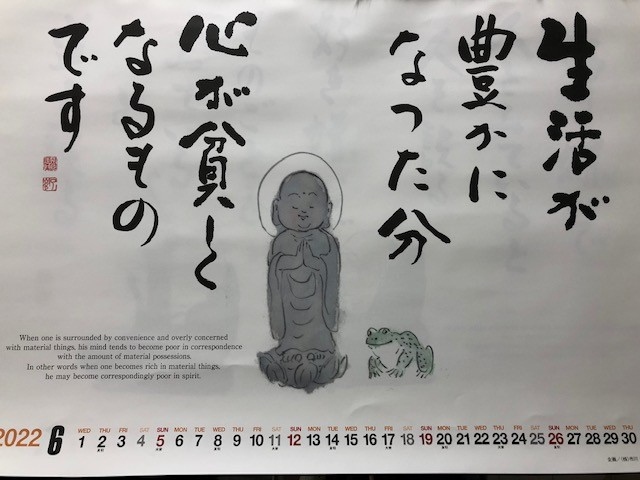 生活が
豊かに
なった分
心が貧しく
なるもの
です
When one is surrounded by convenience and overly concerned
with material things, his mind tends to become poor in correspondence
with the amount of material possessions.
In other words when one becomes rich in material things,
he may become correspondingly poor in spirit.
2022 6
WED THU FRI SAT SUN MON TUE WED THU FRI SAT SUN MON TUE WED THU FRI SAT SUN MON TUE WED THU FRI SAT SUN MON TUE WED THU
1 2 3 4 5 6 7 8 9 10 11 12 13 14 15 16 17 18 19 20 21 22 23 24 25 26 27 28 29 30